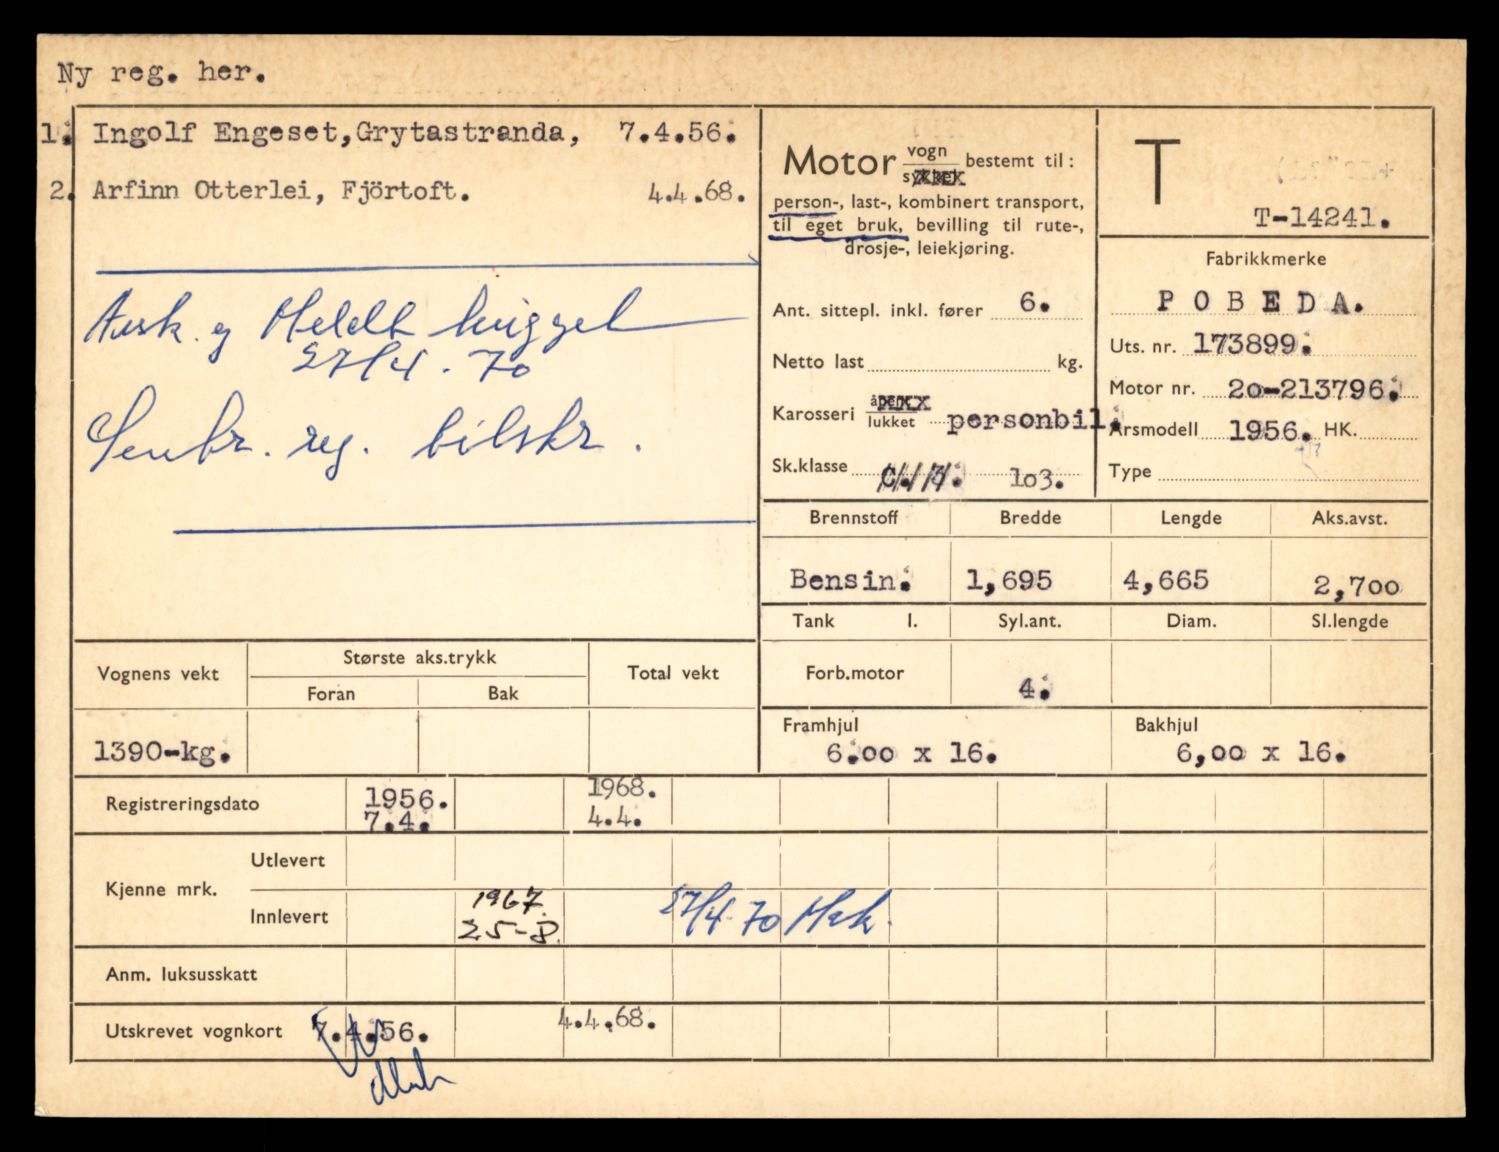 Ny reg. her.
1. Ingolf Engeset, Grytastranda, 7.4.56.
2. Arfinn Otterlei, Fjörtoft. 4.4.68.
Meldt
27/4 - 70
reg. bilskr.
Motor vogn bestemt til:
person-, last-, kombinert transport,
til eget bruk, bevilling til rute-,
drosje-, leiekjøring.
Ant. sittepl. inkl. fører 6.
Netto last kg.
Karosseri åpent lukket personbil.
Sk.klasse 103.
T
T-14241.
Fabrikkmerke
POBEDA.
Uts. nr. 173899.
Motor nr. 20-213796.
Årsmodell 1956. HK.
Type
Brennstoff Bredde Lengde Aks.avst.
Bensin. 1,695 4,665 2,700
Tank l. Syl.ant. Diam. Sl.lengde
Forb.motor 4.
Framhjul Bakhjul
6.00 x 16. 6,00 x 16.
Vognens vekt Største aks.trykk Total vekt
Foran Bak
1390-kg.
Registreringsdato 1956. 1968.
7.4. 4.4.
Kjenne mrk. Utlevert
Innlevert 1967. 27/4-70
25-8.
Anm. luksusskatt
Utskrevet vognkort 7.4.56. 4.4.68.